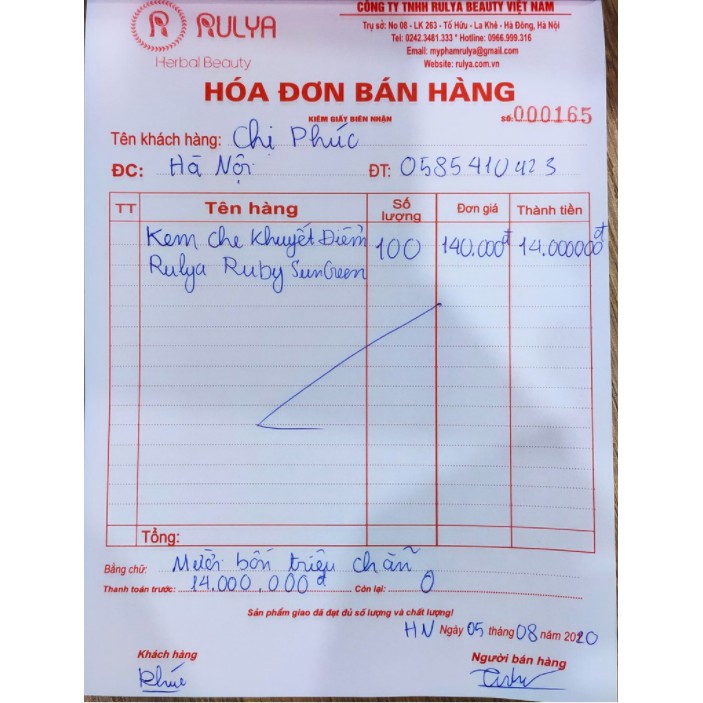 RULYA
Herbal Beauty
CÔNG TY TNHH RULYA BEAUTY VIỆT NAM
Trụ sở: No 08 - LK 263 - Tố Hữu - La Khê - Hà Đông, Hà Nội
Tel: 0242.3481.333 * Hotline: 0966.999.316
Email: myphamrulya@gmail.com
Website: rulya.com.vn
HÓA ĐƠN BÁN HÀNG
KIÊM GIẤY BIÊN NHẬN
Số: 000165
Tên khách hàng: Chị Phúc
ĐC: Hà Nội ĐT: 0585410423
TT Tên hàng Số lượng Đơn giá Thành tiền
Kem che Khuyết Điểm 100 140.000đ 14.000000đ
Rulya Ruby SunGreen
Tổng:
Bằng chữ: Mười bốn triệu chẵn
Thanh toán trước: 14.000.000đ Còn lại: 0
Sản phẩm giao đã đạt đủ số lượng và chất lượng!
HN Ngày 05 tháng 08 năm 2020
Khách hàng Người bán hàng
Phúc